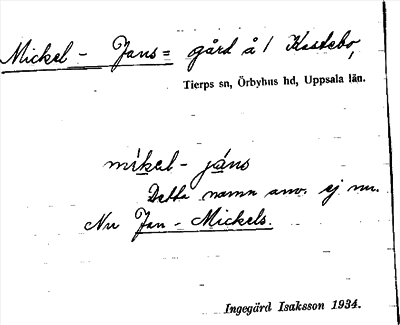 Mickel - Jans= gård å / Kastebo,
Tierps sn, Örbyhus hd, Uppsala län.
míkal - jáns
Detta namn anv. ej nu.
Nu Jan - Mickels.
Ingegärd Isaksson 1934.